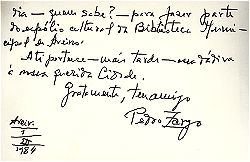 dia — quem sabe? — para fazer parte
do espólio cultural da Biblioteca Muni-
cipal de Aveiro.
Até portanto — mais tarde — uma dádiva
à nossa querida Cidade.
Gratamente, teu amigo
Pedro Zargo
Aveir.
1
III
1984